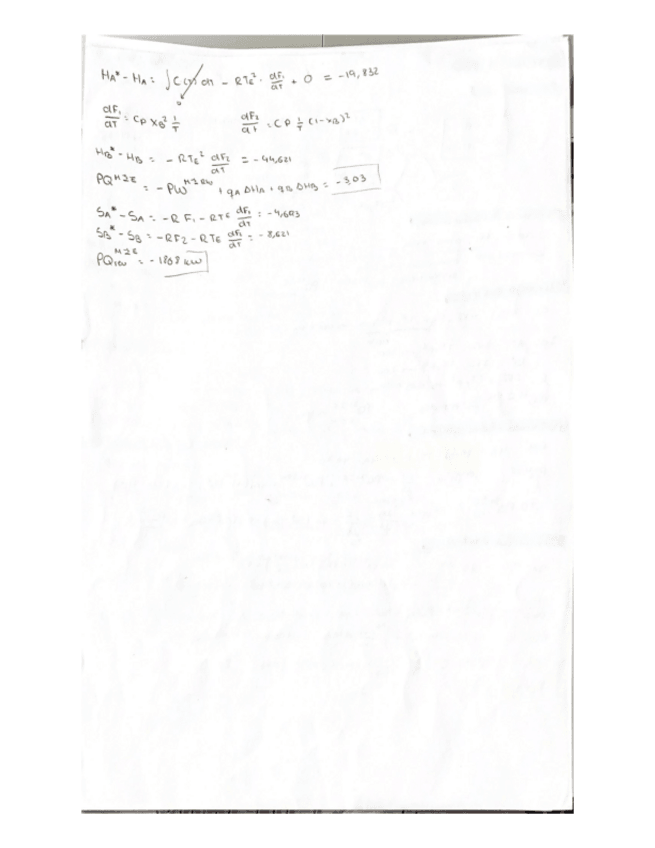 HA* - HA = ∫ C(T) dT - RTE² · dF1/dT + 0 = -19,832
dF1/dT = CP XB² 1/T    dF2/dT = CP 1/T (1-XB)²
HB* - HB = - RTE² dF2/dT = -44,621
PQ = - PW + qA ΔHA + qB ΔHB = -3,03
SA* - SA = -R F1 - RTE dF1/dT = -4,603
SB* - SB = -RF2 - RTE dF2/dT = -8,621
PQ rev = -1808 kW